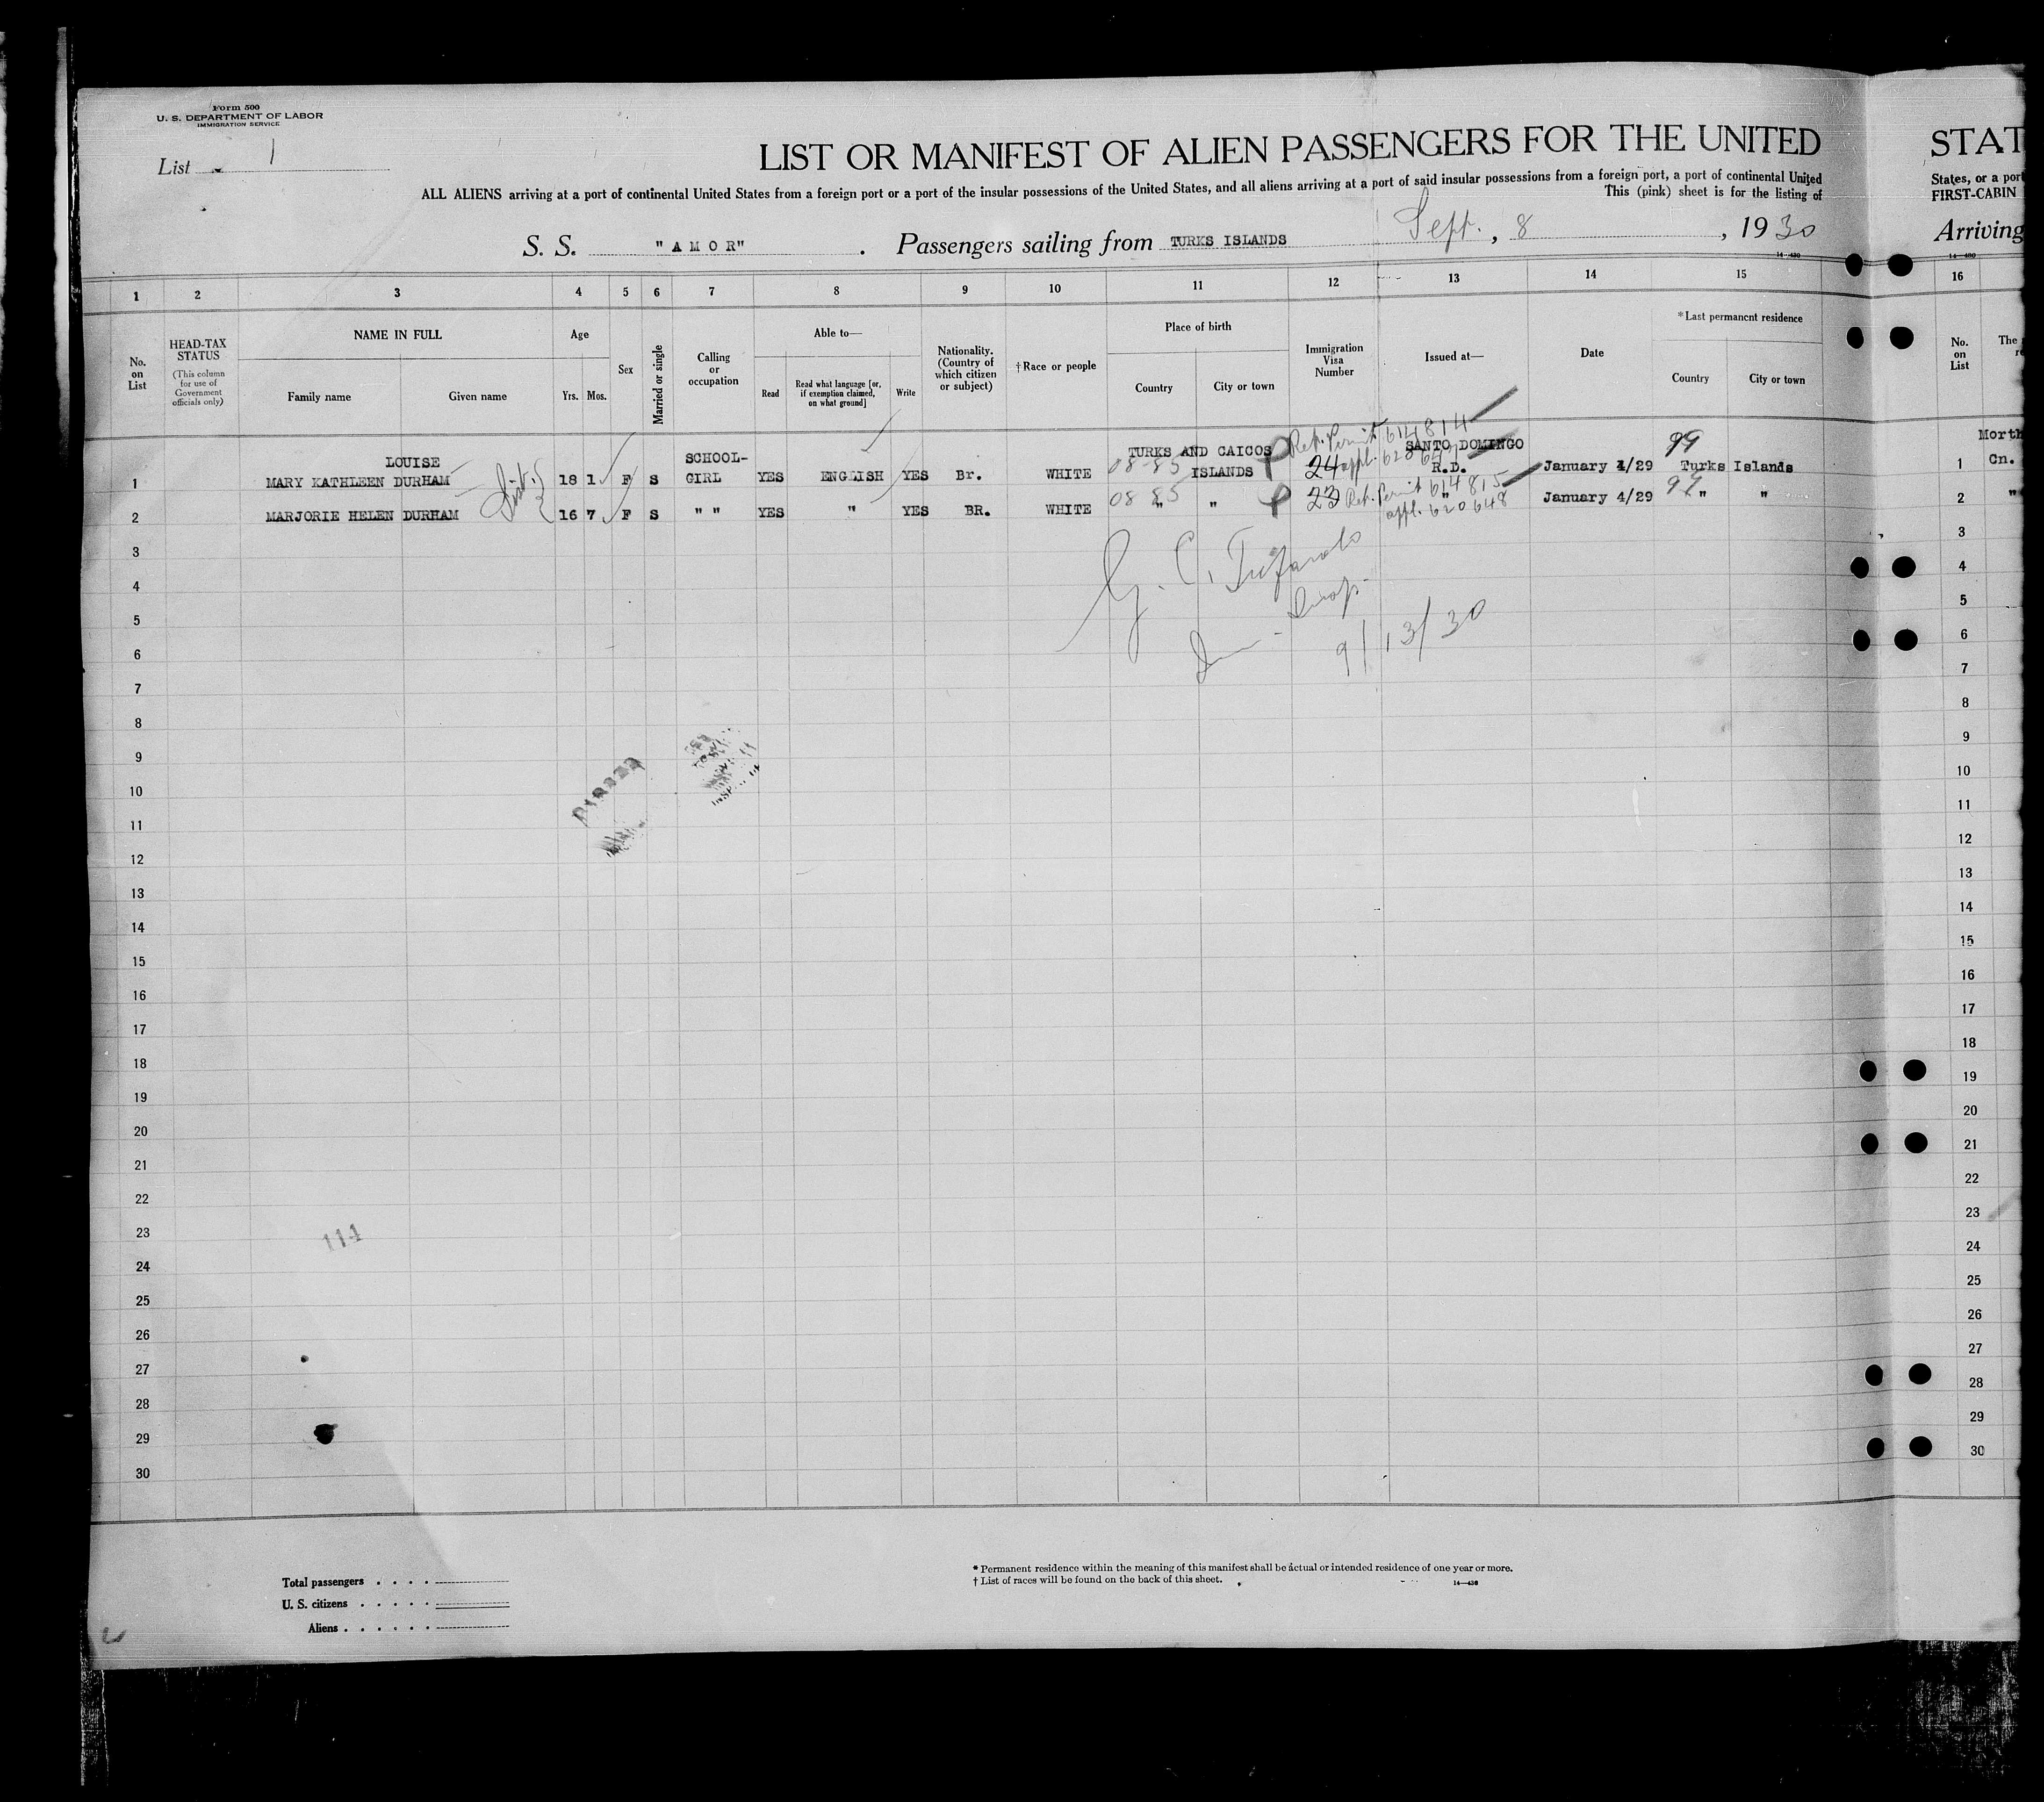 Form 500
U. S. DEPARTMENT OF LABOR
IMMIGRATION SERVICE
List 1
LIST OR MANIFEST OF ALIEN PASSENGERS FOR THE UNITED STAT
ALL ALIENS arriving at a port of continental United States from a foreign port or a port of the insular possessions of the United States, and all aliens arriving at a port of said insular possessions from a foreign port, a port of continental United States, or a port
This (pink) sheet is for the listing of FIRST-CABIN
S. S. "AMOR". Passengers sailing from TURKS ISLANDS Sept., 8, 1930 Arriving
14—430 14—430
1 2 3 4 5 6 7 8 9 10 11 12 13 14 15 16
No. on List
HEAD-TAX STATUS (This column for use of Government officials only)
NAME IN FULL
Family name Given name
Age
Yrs. Mos.
Sex
Married or single
Calling or occupation
Able to—
Read
Read what language [or, if exemption claimed, on what ground]
Write
Nationality. (Country of which citizen or subject)
†Race or people
Place of birth
Country City or town
Immigration Visa Number
Issued at—
Date
*Last permanent residence
Country City or town
No. on List
The
Ret. Permit 614814
LOUISE SCHOOL- TURKS AND CAICOS SANTO DOMINGO 99 Morth
1 MARY KATHLEEN DURHAM 18 1 F S GIRL YES ENGLISH YES Br. WHITE 08-85 ISLANDS 24 appl. R.D. January 4/29 Turks Islands 1 Cn.
2 MARJORIE HELEN DURHAM Sist. 16 7 F S " " YES " YES BR. WHITE 08 85 " " 23 Ret. Permit 614815 " January 4/29 99 " " 2 "
appl. 620648
3 3
4 4
5 5
6 9/13/30 6
7 7
8 8
9 9
10 10
11 11
12 12
13 13
14 14
15 15
16 16
17 17
18 18
19 19
20 20
21 21
22 22
23 114 23
24 24
25 25
26 26
27 27
28 28
29 29
30 30
Total passengers . . . .
U. S. citizens . . . . .
Aliens . . . . . .
* Permanent residence within the meaning of this manifest shall be actual or intended residence of one year or more.
† List of races will be found on the back of this sheet.
14—430